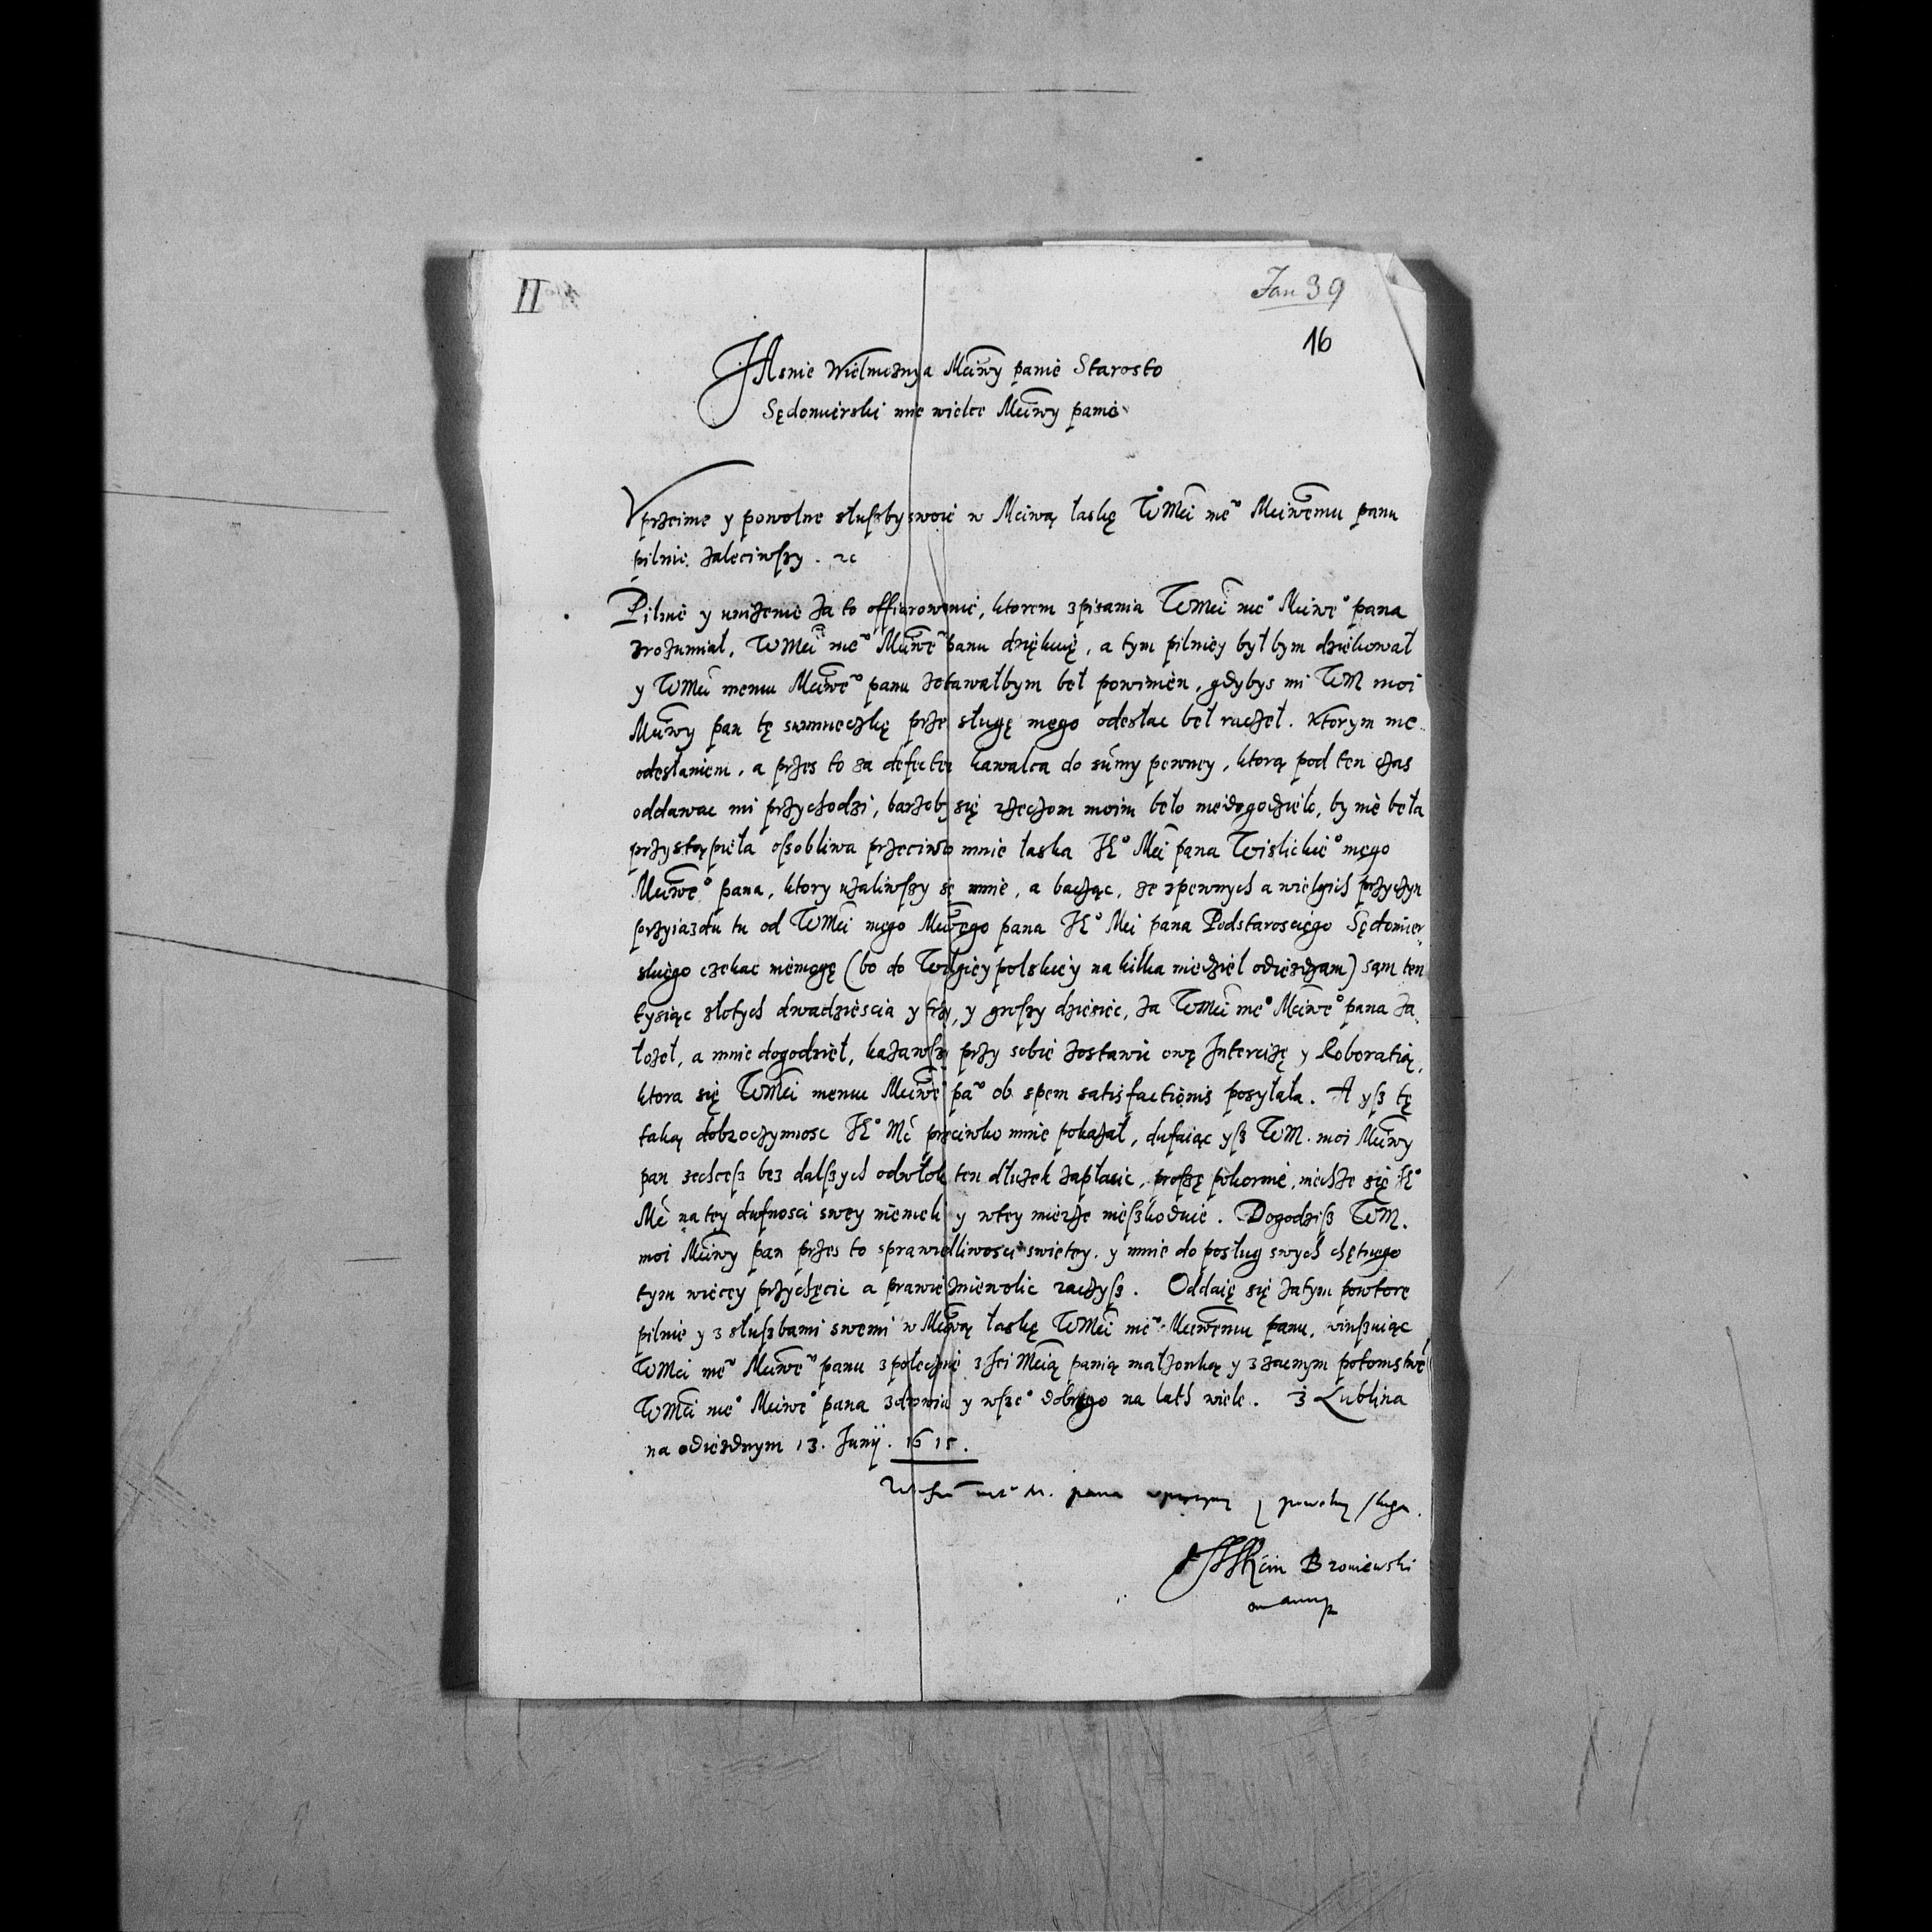 II
Jan 39
16
JAsnie Wielmożny a Mciwy panie Starosto
Sędomierski mnie wielce Mciwy panie
Vprzeime y powolne służby swoie w Mciwą łaskę WMci meo Mciwemu panu
pilnie zaleciwszy. etc
Pilnie y uniżenie za to offiarowanie, ktorem z pisania WMci meo Mciweo pana
zrozumiał, WMci meo Mciwe panu dziękuię, a tym pilniey był bym dziękował
y WMci memu Mciweo panu zostawałbym beł powinien, gdybys mi WM moi
Mciwy pan tę summeczkę przez sługę mego odesłac beł raczeł. Ktorym nie
odesłaniem, a przes to za defectem kawalca do sumy pewney, ktorą pod ten czas
oddawac mi przychodzi, barzoby się rzeczom moim beło niedogodzieło, by nie beła
przystąpieła osobliwa przeciwko mnie łaska JEo Mci pana Wislickieo mego
Mciweo pana, ktory użaliwszy się mnie, a bacząc, że z pewnych a wielgich przyczyn
przyiazdu tu od WMci mego Mciwego pana JEo Mci pana Podstarosciego Sędomier
skiego czekac niemogę (bo do Wielgiey polskiey na kilka niedziel odieżdzam) sam ten
tysiąc złotych dwadziescia y trzy, y groszy dziesięc, za WMci meo Mciweo pana za
łożeł, a mnie dogodzieł, kazawszy przy sobie zostawic onę Intercizę y Roboratią,
ktora się WMci memu Mciwe pao ob spem satisfactionis posyłała. A ysz tę
taką dobroczynnosc JEo Mć przeciwko mnie pokazał, dufaiąc ysz WM. moi Mciwy
pan zechcesz bez dalszych odwłok ten dłużek zapłacic, proszę pokornie, niechże się JEo
Mć na tey dufnosci swey niemeli y w tey mierze nieszkoduie. Dogodzisz WM.
moi Mciwy pan przes to sprawiedliwosci swietey, y mnie do posług swych chętnego
tym więcey przychęcic a prawie zniewolic raczysz. Oddaię się zatym powtore
pilnie y z służbami swemi w Mciwą łaskę WMci meo Mciwemu panu, winszuiąc
WMci meo Mciweo panu z połecznie z Jei Mcią panią małżonką y z zacnym potomstwē
WMci meo Mciweo pana zdrowia y wszeo dobrego na lath wiele. z Lublina
na odiezdnym 13. Junij. 1615.
pana uprzeymy y powolny sługa.
Broniewski